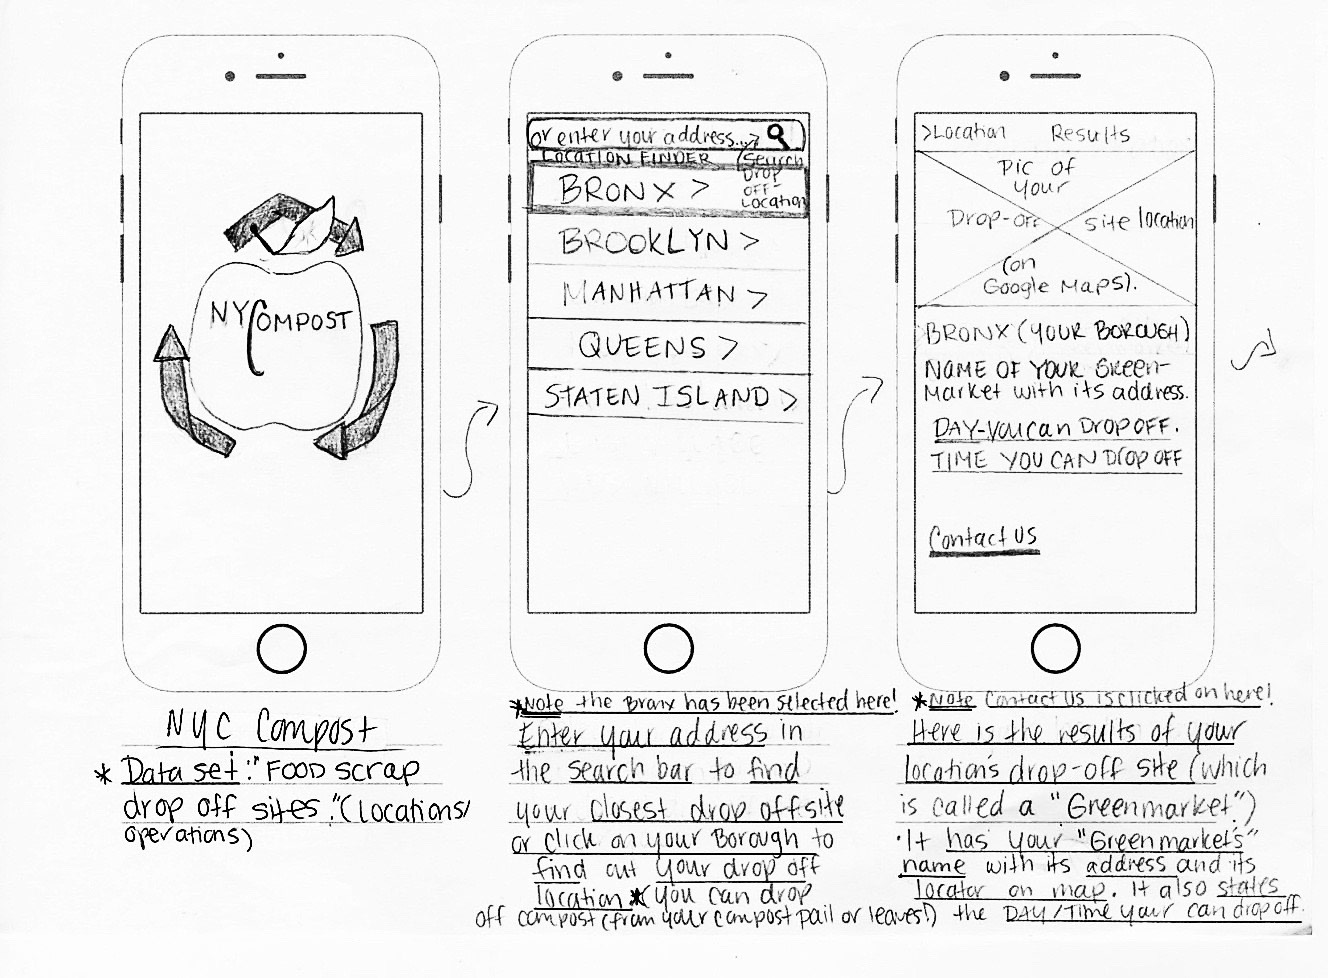 NYCOMPOST
NYC Compost
* Data set: "FOOD scrap
drop off sites." (locations/
operations)
or enter your address...>
LOCATION FINDER (Search
Drop
OFF-
Location
BRONX >
BROOKLYN >
MANHATTAN >
QUEENS >
STATEN ISLAND >
*Note the Bronx has been selected here!
Enter your address in
the search bar to find
your closest drop off site
or click on your Borough to
find out your drop off
location * You can drop
off compost (from your compost pail or leaves!)
>Location Results
Pic of
your
Drop-off site location
(on
Google Maps).
BRONX (YOUR BOROUGH)
NAME OF YOUR Green-
Market with its address.
DAY-You can DROP OFF.
TIME YOU CAN DROP OFF
Contact US
*Note Contact US is clicked on here!
Here is the results of your
location's drop-off site (which
is called a "Greenmarket".)
·It has your "Greenmarket's"
name with its address and its
locator on map. It also states
the DAY/Time your can drop off.